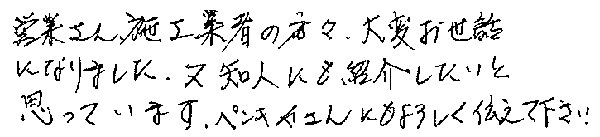 営業さん、施工業者の方々、大変お世話
になりました。又知人にも紹介したいと
思っています。ペンキやさんにもよろしく伝えて下さい!